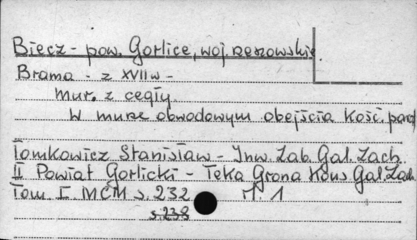 Biecz - pow. Gorlice, woj. rzeszowskie
Brama - z XVII w -
mur. z cegły
w murze obwodowym obejścia Kość. par
Tomkowicz Stanisław - Inw. Zab. Gal. Zach.
II Powiat Gorlicki - Teka Grona Kons Gal. Zach
Tom I. MCM s. 232 M. 1
s. 238